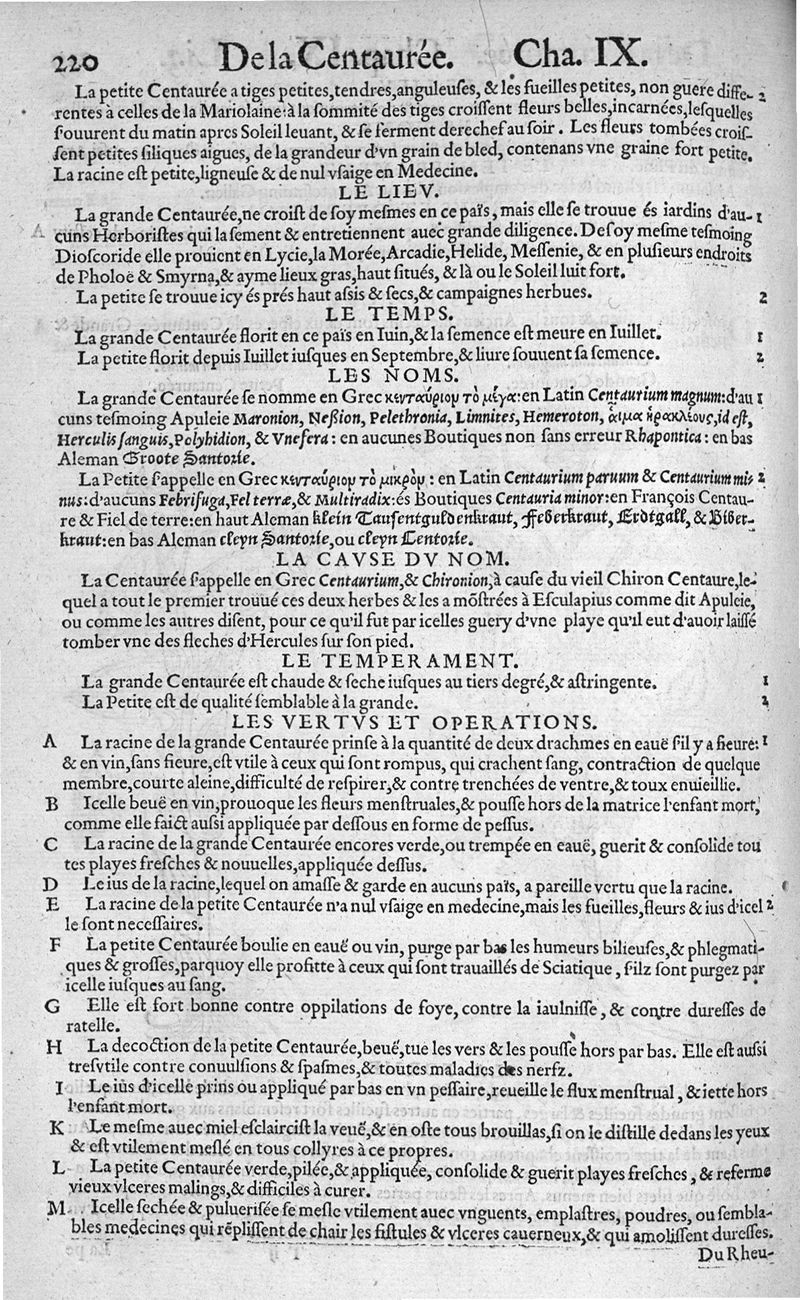 220 De la Centaurée. Cha. IX.
La petite Centaurée a tiges petites, tendres, anguleuſes, & les fueilles petites, non guere diffe- 2
rentes à celles de la Mariolaine: à la ſommité des tiges croiſſent fleurs belles, incarnées, leſquelles
ſouurent du matin apres Soleil leuant, & ſe ferment derechef au ſoir. Les fleurs tombées croiſ-
ſent petites ſiliques aigues, de la grandeur d'vn grain de bled, contenans vne graine fort petite.
La racine eſt petite, ligneuſe & de nul vſaige en Medecine.
LE LIEV.
La grande Centaurée, ne croiſt de ſoy meſmes en ce païs, mais elle ſe trouue és iardins d'au- 1
A cuns Herboriſtes qui la ſement & entretiennent auec grande diligence. De ſoy meſme teſmoing
Dioſcoride elle prouient en Lycie, la Morée, Arcadie, Helide, Meſſenie, & en pluſieurs endroits
de Pholoë & Smyrna, & ayme lieux gras, haut ſitués, & là ou le Soleil luit fort.
La petite ſe trouue icy és prés haut aſsis & ſecs, & campaignes herbues. 2
LE TEMPS.
La grande Centaurée florit en ce païs en Iuin, & la ſemence eſt meure en Iuillet. 1
La petite florit depuis Iuillet iuſques en Septembre, & liure ſouuent ſa ſemence. 2
LES NOMS.
La grande Centaurée ſe nomme en Grec κενταύριον τὸ μέγα: en Latin Centaurium magnum: d'au 1
cuns teſmoing Apuleie Maronion, Neßion, Pelethronia, Limnites, Hemeroton, αἷμα ἡρακλέους, id eſt,
Herculis ſanguis, Polyhidion, & Vnefera: en aucunes Boutiques non ſans erreur Rhapontica: en bas
Aleman Groote Santorie.
La Petite ſ'appelle en Grec κενταύριον τὸ μικρὸν: en Latin Centaurium paruum & Centaurium mi- 2
nus: d'aucuns Febrifuga, Fel terræ, & Multiradix: és Boutiques Centauria minor: en François Centau-
re & Fiel de terre: en haut Aleman klein Tauſentguldenkraut, Feberkraut, Erdtgall, & Biber-
kraut: en bas Aleman cleyn Santorie, ou cleyn Centorie.
LA CAVSE DV NOM.
La Centaurée ſ'appelle en Grec Centaurium, & Chironion, à cauſe du vieil Chiron Centaure, le-
quel a tout le premier trouué ces deux herbes & les a mõſtrées à Eſculapius comme dit Apuleie,
ou comme les autres diſent, pour ce qu'il fut par icelles guery d'vne playe qu'il eut d'auoir laiſſé
tomber vne des fleches d'Hercules ſur ſon pied.
LE TEMPERAMENT.
La grande Centaurée eſt chaude & ſeche iuſques au tiers degré, & aſtringente. 1
La Petite eſt de qualité ſemblable à la grande. 2
LES VERTVS ET OPERATIONS.
A La racine de la grande Centaurée prinſe à la quantité de deux drachmes en eauë ſ'il y a fieure: 1
& en vin, ſans fieure, eſt vtile à ceux qui ſont rompus, qui crachent ſang, contraction de quelque
membre, courte aleine, difficulté de reſpirer, & contre trenchées de ventre, & toux enuieillie.
B Icelle beuë en vin, prouoque les fleurs menſtruales, & pouſſe hors de la matrice l'enfant mort,
comme elle faict auſsi appliquée par deſſous en forme de peſſus.
C La racine de la grande Centaurée encores verde, ou trempée en eauë, guerit & conſolide tou
tes playes freſches & nouuelles, appliquée deſſus.
D Le ius de la racine, lequel on amaſſe & garde en aucuns païs, a pareille vertu que la racine.
E La racine de la petite Centaurée n'a nul vſaige en medecine, mais les fueilles, fleurs & ius d'icel 2
le ſont neceſſaires.
F La petite Centaurée boulie en eauë ou vin, purge par bas les humeurs bilieuſes, & phlegmati-
ques & groſſes, parquoy elle profitte à ceux qui ſont trauaillés de Sciatique, ſ'ilz ſont purgez par
icelle iuſques au ſang.
G Elle eſt fort bonne contre oppilations de foye, contre la iaulniſſe, & contre dureſſes de
ratelle.
H La decoction de la petite Centaurée, beuë, tue les vers & les pouſſe hors par bas. Elle eſt auſsi
treſvtile contre conuulſions & ſpaſmes, & toutes maladies des nerfz.
I Le ius d'icelle prins ou appliqué par bas en vn peſſaire, reueille le flux menſtrual, & iette hors
l'enfant mort.
K Le meſme auec miel eſclairciſt la veuë, & en oſte tous brouillas, ſi on le diſtille dedans les yeux
& eſt vtilement meſlé en tous collyres à ce propres.
L La petite Centaurée verde, pilée, & appliquée, conſolide & guerit playes freſches, & referme
vieux vlceres malings, & difficiles à curer.
M Icelle ſechée & puluerisée ſe meſle vtilement auec vnguents, emplaſtres, poudres, ou ſembla-
bles medecines qui rẽpliſſent de chair les fiſtules & vlceres cauerneux, & qui amoliſſent dureſſes.
Du Rheu-